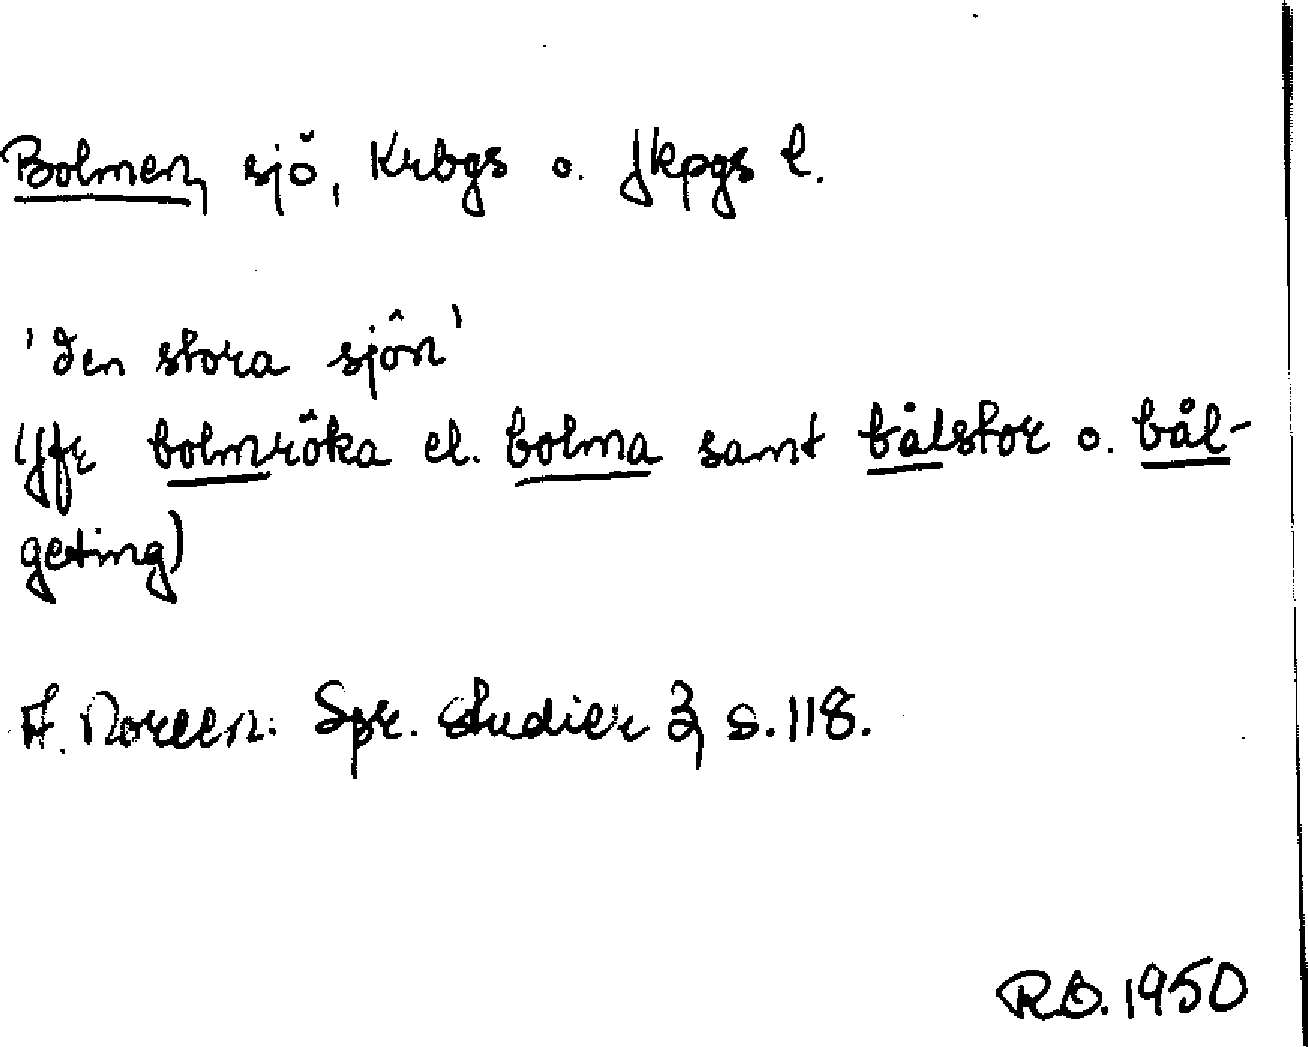 Bolmen, sjö, Krbgs o. Jkpgs l.
'den stora sjön'
(jfr bolmröka el. bolma samt bålstor o. bål-
geting)
A. Noreen: Spr. studier 3, s. 118.
R.O. 1950